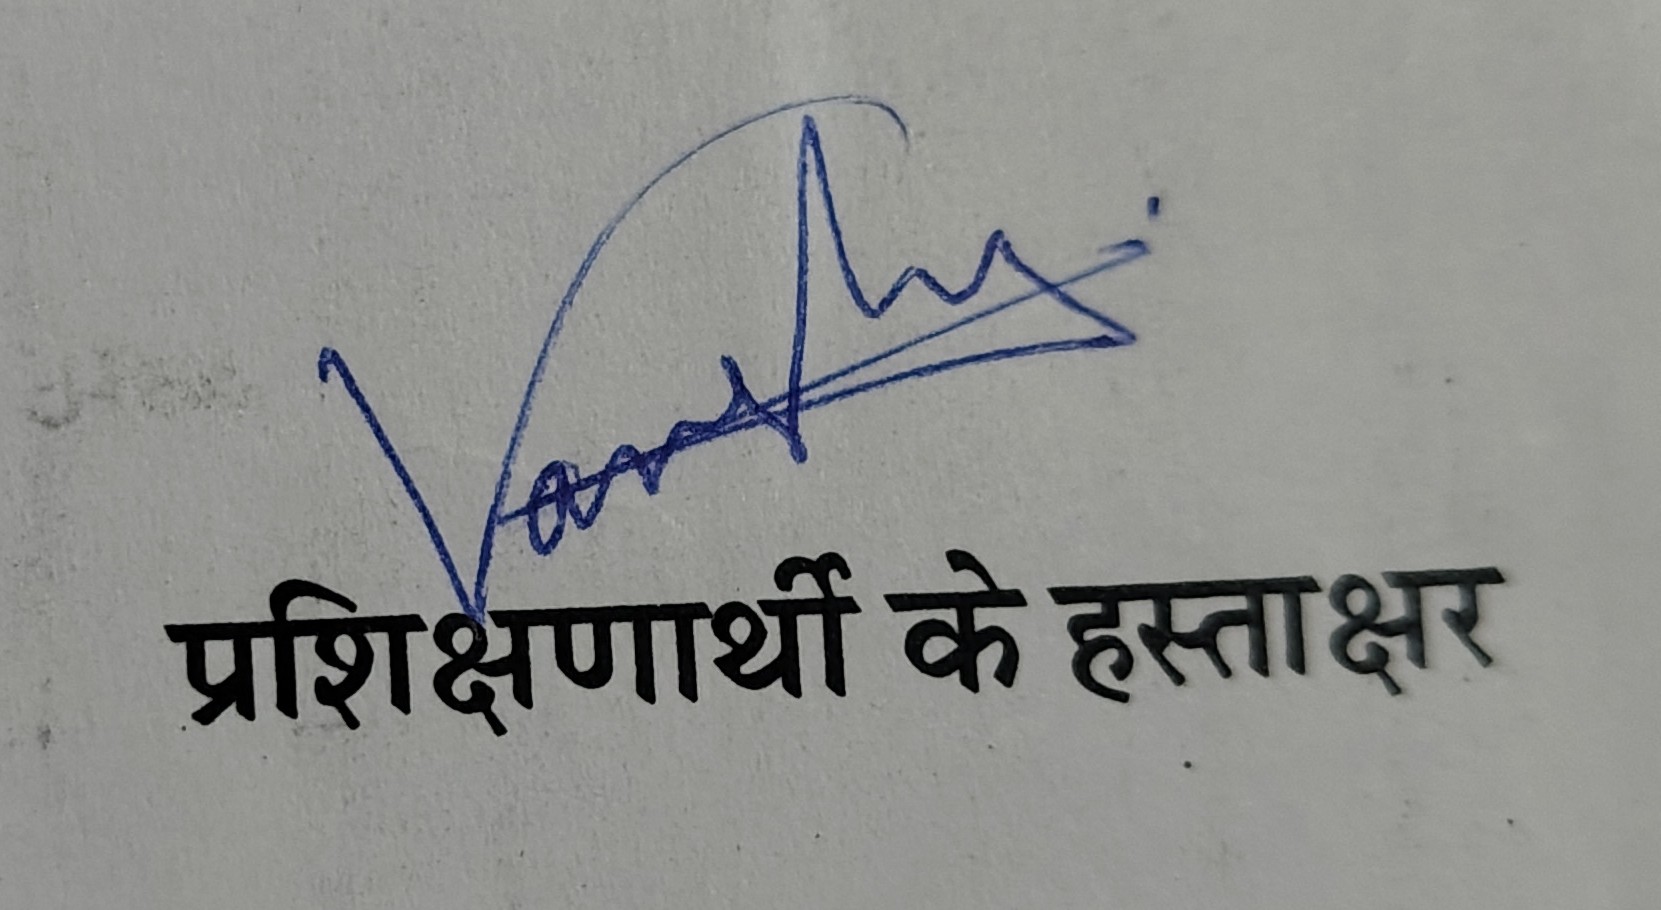 प्रशिक्षणार्थी के हस्ताक्षर